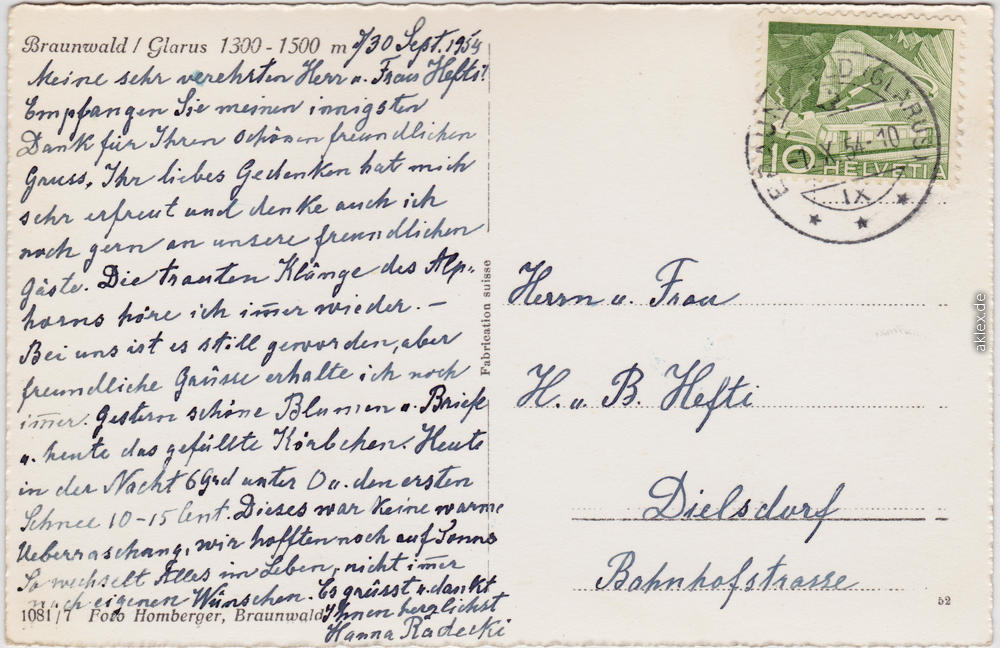 Braunwald / Glarus 1300-1500 m 30 Sept. 1954
Meine sehr verehrten Herr u. Frau Hefti!
Empfangen Sie meinen innigsten
Dank für Ihren schönen freundlichen
Gruss, Ihr liebes Gedenken hat mich
sehr erfreut und denke auch ich
noch gern an unsere freundlichen
Gäste. Die trauten Klänge des Alp-
horns höre ich im̅er wieder. –
Bei uns ist es still geworden, aber
freundliche Grüsse erhalte ich noch
im̅er. Gestern schöne Blumen u. Briefe
u. heute das gefüllte Körbchen. Heute
in der Nacht 6 Grd unter 0 u. den ersten
Schnee 10-15 Cent. Dieses war keine warme
Ueberraschung, wir hofften noch auf Sonne
So wechselt Alles im Leben, nicht im̅er
nach eigenen Wünschen. Es grüsst u. dankt
Ihnen herzlichst
Hanna Rädecki
1081/7 Foto Homberger, Braunwald
Fabrication suisse
10 HELVETIA
(GLARUS)
X. 54-10
IX
Herrn u. Frau
H. u. B. Hefti
Dielsdorf
Bahnhofstrasse
52
aklex.de